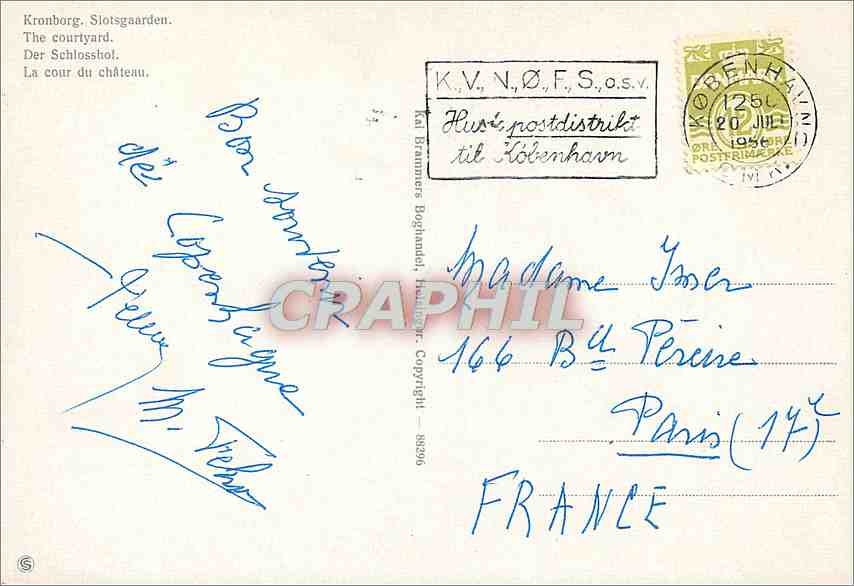 Kronborg. Slotsgaarden.
The courtyard.
Der Schlosshof.
La cour du château.
K., V., N., Ø., F., S., o.s.v.
Husk postdistrikt
til København
KØBENHAVN
1250
20 JUL
1956
12
ØRE
POSTFRIMÆRKE
Kai Brammers Boghandel, Helsingør. Copyright — 88396
Bon souvenir
de Copenhague
M.
CRAPHIL
Madame
166 Bd Péreire
Paris (17e)
FRANCE